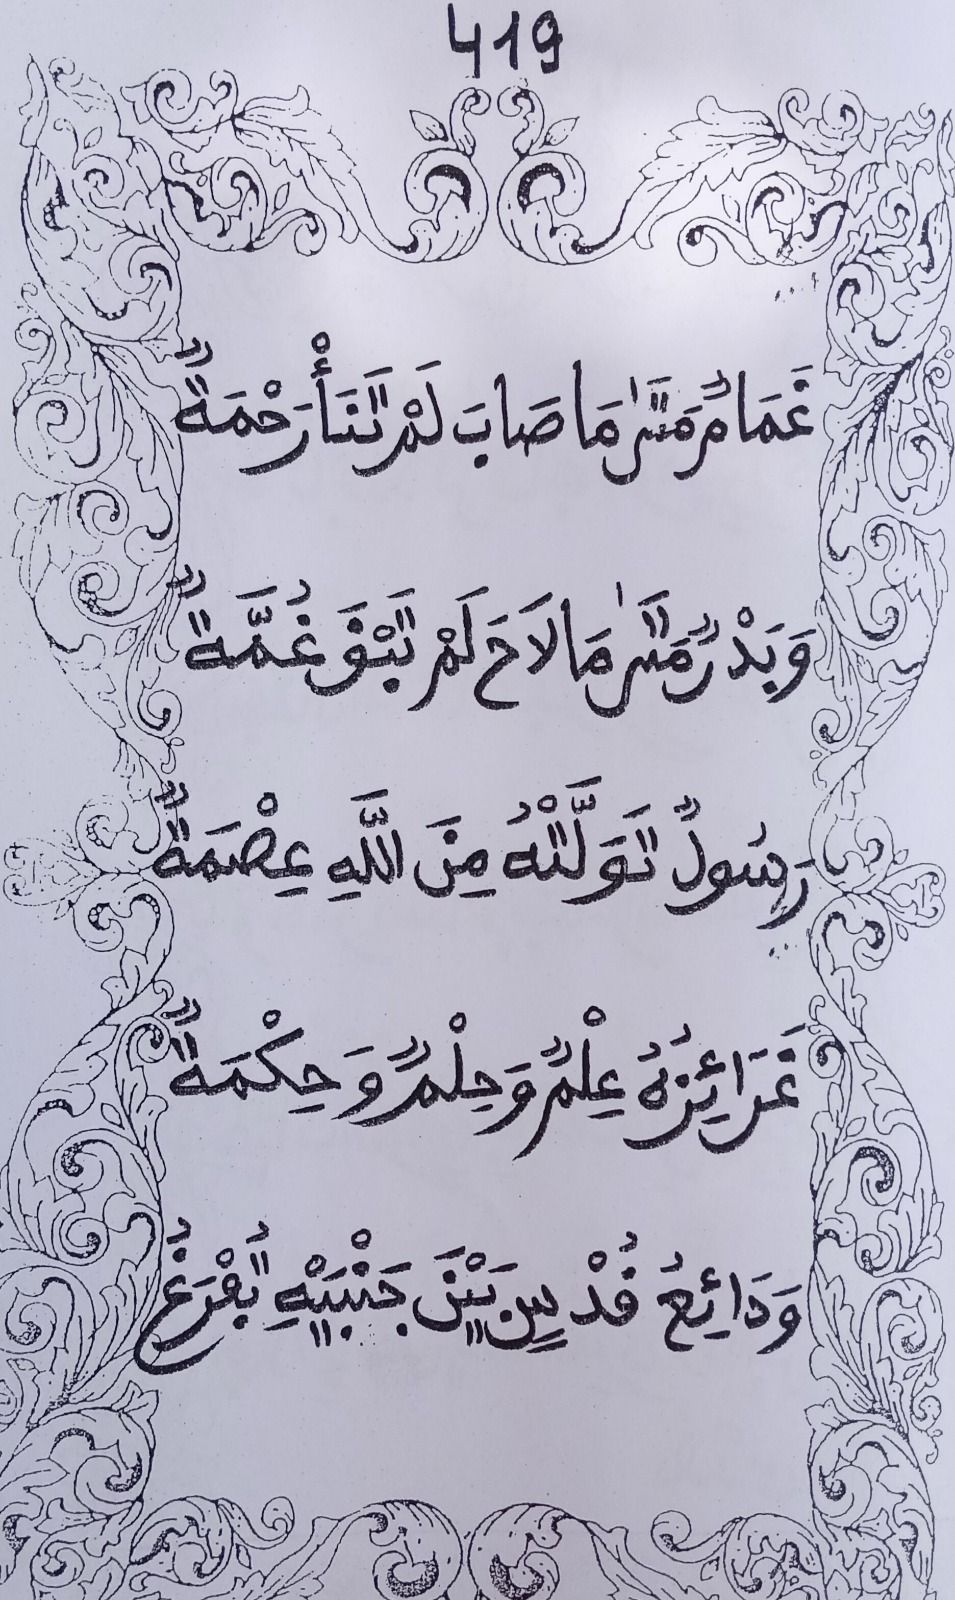 419
غَمَامٌ مَتَىٰ مَا صَابَ لَمْ تَنْأَ رَحْمَةٌ
وَبَدْرٌ مَتَىٰ مَا لَاحَ لَمْ تَبْقَ غُمَّةٌ
رَسُولٌ تَوَلَّتْهُ مِنَ اللَّهِ عِصْمَةٌ
غَرَائِزُهُ عِلْمٌ وَحِلْمٌ وَحِكْمَةٌ
وَدَائِعُ قُدْسٍ بَيْنَ جَنْبَيْهِ تُفْرَغُ